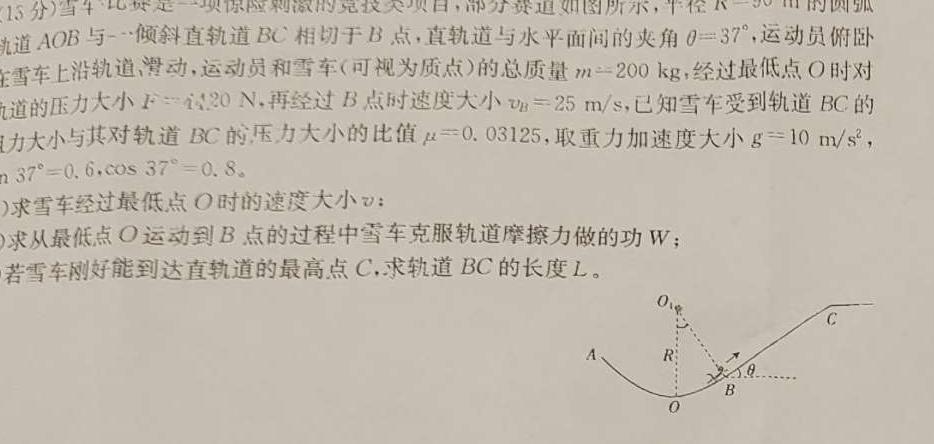 (15分)雪车比赛是一项惊险刺激的竞技类项目,部分赛道如图所示,半径R=90 m的圆弧
轨道AOB与一倾斜直轨道BC相切于B点,直轨道与水平面间的夹角θ=37°,运动员俯卧
在雪车上沿轨道滑动,运动员和雪车(可视为质点)的总质量m=200 kg,经过最低点O时对
轨道的压力大小F= 20 N,再经过B点时速度大小v_B=25 m/s,已知雪车受到轨道BC的
阻力大小与其对轨道BC的压力大小的比值μ=0.03125,取重力加速度大小g=10 m/s²,
n 37°=0.6,cos 37°=0.8。
)求雪车经过最低点O时的速度大小v;
)求从最低点O运动到B点的过程中雪车克服轨道摩擦力做的功W;
若雪车刚好能到达直轨道的最高点C,求轨道BC的长度L。
O₁
C
A
R
θ
B
O